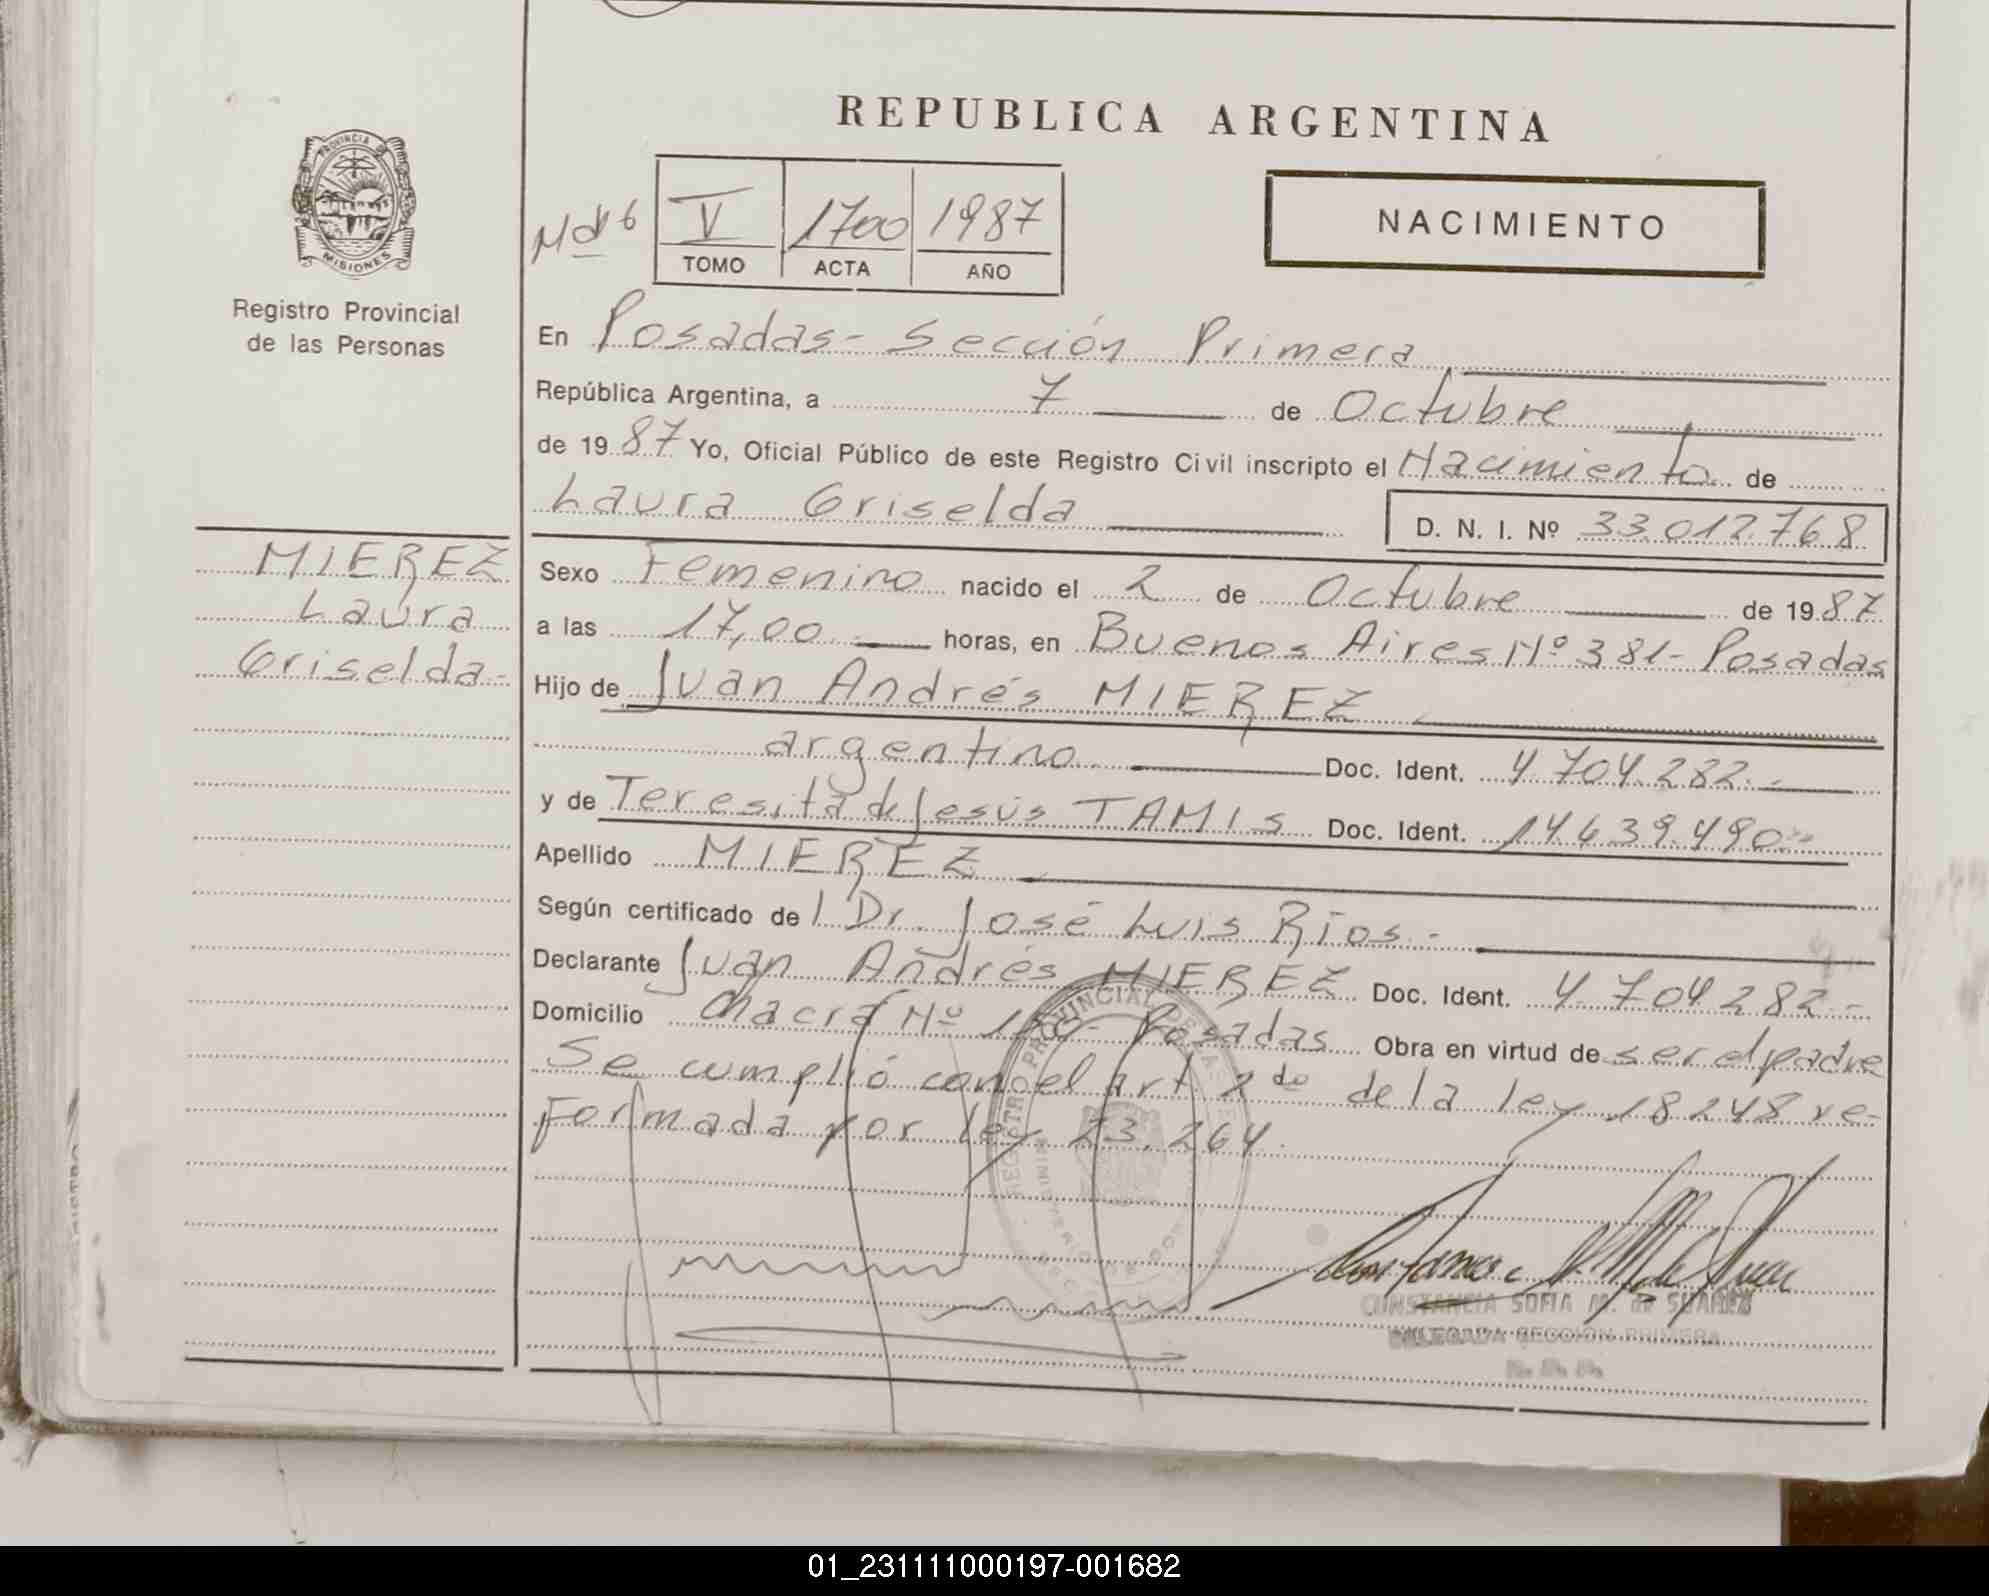 REPUBLICA ARGENTINA
PROVINCIA DE
MISIONES
Registro Provincial
de las Personas
V 1700 1987
TOMO ACTA AÑO
NACIMIENTO
En Posadas - Sección Primera
República Argentina, a 7 de Octubre
de 1987 Yo, Oficial Público de este Registro Civil inscripto el Nacimiento de
Laura Griselda D. N. I. Nº 33.012.768
MIEREZ
Laura
Griselda-
Sexo Femenino nacido el 2 de Octubre de 1987
a las 17,00 horas, en Buenos Aires Nº 381- Posadas
Hijo de Juan Andrés MIEREZ
argentino Doc. Ident. 4.704.282.-
y de Teresita de Jesús TAMIS Doc. Ident. 14.639.490.-
Apellido MIEREZ
Según certificado de l Dr. José Luis Ríos.-
Declarante Juan Andrés MIEREZ Doc. Ident. 4.704.282-
Domicilio Chacra Nº - Posadas Obra en virtud de ser el padre
Se cumplió con el art. 2do de la ley 18248 re-
formada por ley 23.264.
REGISTRO PROVINCIAL DE LAS
CONSTANCIA SOFIA M. de SUAREZ
DELEGADA SECCION PRIMERA
01_231111000197-001682